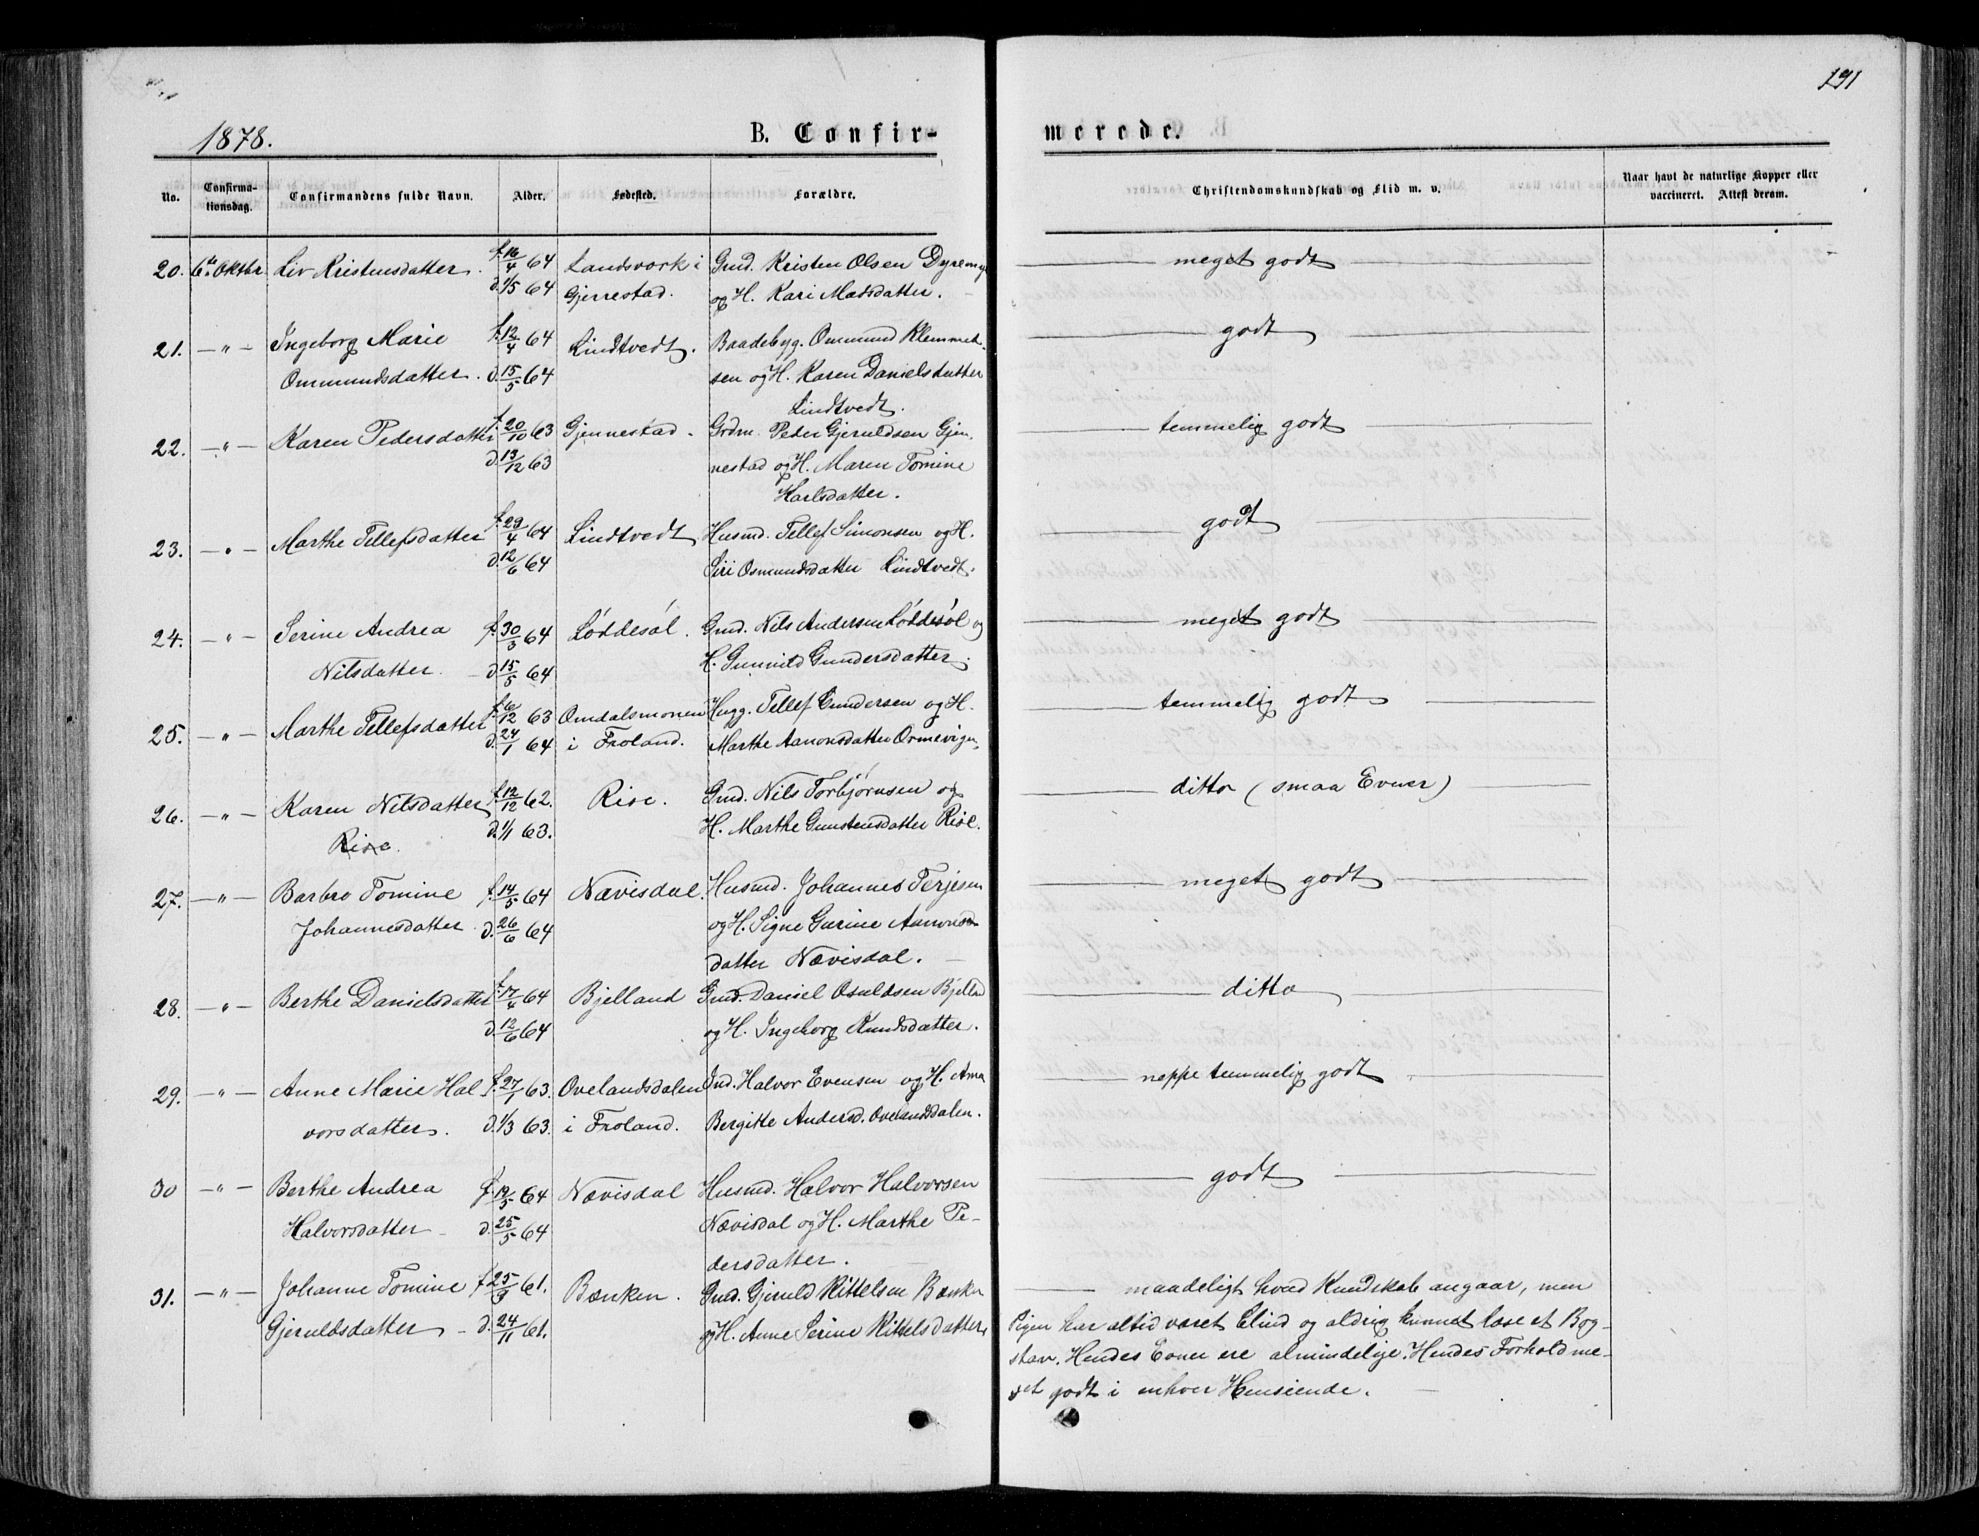 191
1878. B. Confir- merede.
No. Confirma-tionsdag. Confirmandens fulde Navn. Alder. Fødested. Forældre. Christendomskundskab og Flid m. v. Naar havt de naturlige Kopper eller vaccineret. Attest derom.
20. 6te Oktbr Liv Kristensdatter. f. 16/4 64 Landsverk i Gmd. Kristen Olsen Dyremyr meget godt
d. 1/5 64 Gjerrestad. og H. Kari Madsdatter.
21. —"— Ingeborg Marie f. 12/4 64 Lindtvedt. Baadebyg. Ommund Klemmet- godt
Ommundsdatter. d. 15/5 64 sen og H. Karen Danielsdatter
Lindtvedt.
22. —"— Karen Pedersdatter f. 20/10 63 Gjennestad. Grdm. Peder Gjeruldsen Gjen- temmelig godt
d. 13/12 63 nestad og H. Maren Tomine
Karlsdatter.
23. —"— Marthe Tellefsdatter f. 29/4 64 Lindtvedt Husmd. Tellef Simonsen og H. godt
d. 12/6 64 Siri Osmundsdatter Lindtvedt.
24. —"— Serine Andrea f. 30/3 64 Løddesøl. Gmd. Nils Andersen Løddesøl og meget godt
Nilsdatter. d. 15/5 64 H. Gunvild Gundersdatter.
25. —"— Marthe Tellefsdatter f. 6/12 63 Omdalsmonen Hugg. Tellef Gundersen og H. temmelig godt
d. 24/1 64 i Froland. Marthe Aanonsdatter Ormevigen.
26. —"— Karen Nilsdatter f. 12/12 62. Rise. Gmd. Nils Torbjørnsen og ditto (smaa Evner)
Rise. d. 1/1 63. H. Marthe Gunstensdatter Rise.
27. —"— Barbro Tomine f. 14/5 64 Nævisdal. Husmd. Johannes Terjesen meget godt
Johannesdatter d. 26/6 64 og H. Signe Gurine Aanons-
datter Nævisdal.
28. —"— Berthe Danielsdatter f. 17/4 64 Bjelland Gmd. Daniel Osuldsen Bjelland ditto
d. 12/6 64 og H. Ingeborg Knudsdatter.
29. —"— Anne Marie Hal- f. 27/1 63. Ovelandsdalen Ind. Halvor Evensen og H. Anna neppe temmelig godt
vorsdatter. d. 1/3 63. i Froland. Bergitte Andersd. Ovelandsdalen.
30 —"— Berthe Andrea f. 14/5 64 Nævisdal Husmd. Halvor Halvorsen godt
Halvorsdatter d. 25/5 64 Nævisdal og H. Marthe Pe-
dersdatter.
31. —"— Johanne Tomine f. 25/9 61. Bænken. Gmd. Gjeruld Kittelsen Bænken maadeligt hvad Kundskab angaar, men
Gjeruldsdatter d. 24/11 61. og H. Anne Serine Kittelsdatter. Pigen har altid været blind og aldrig kunnet læse et Bog-
stav. Hendes Evner ere almindelige. Hendes Forhold me-
get godt i enhver Henseende.